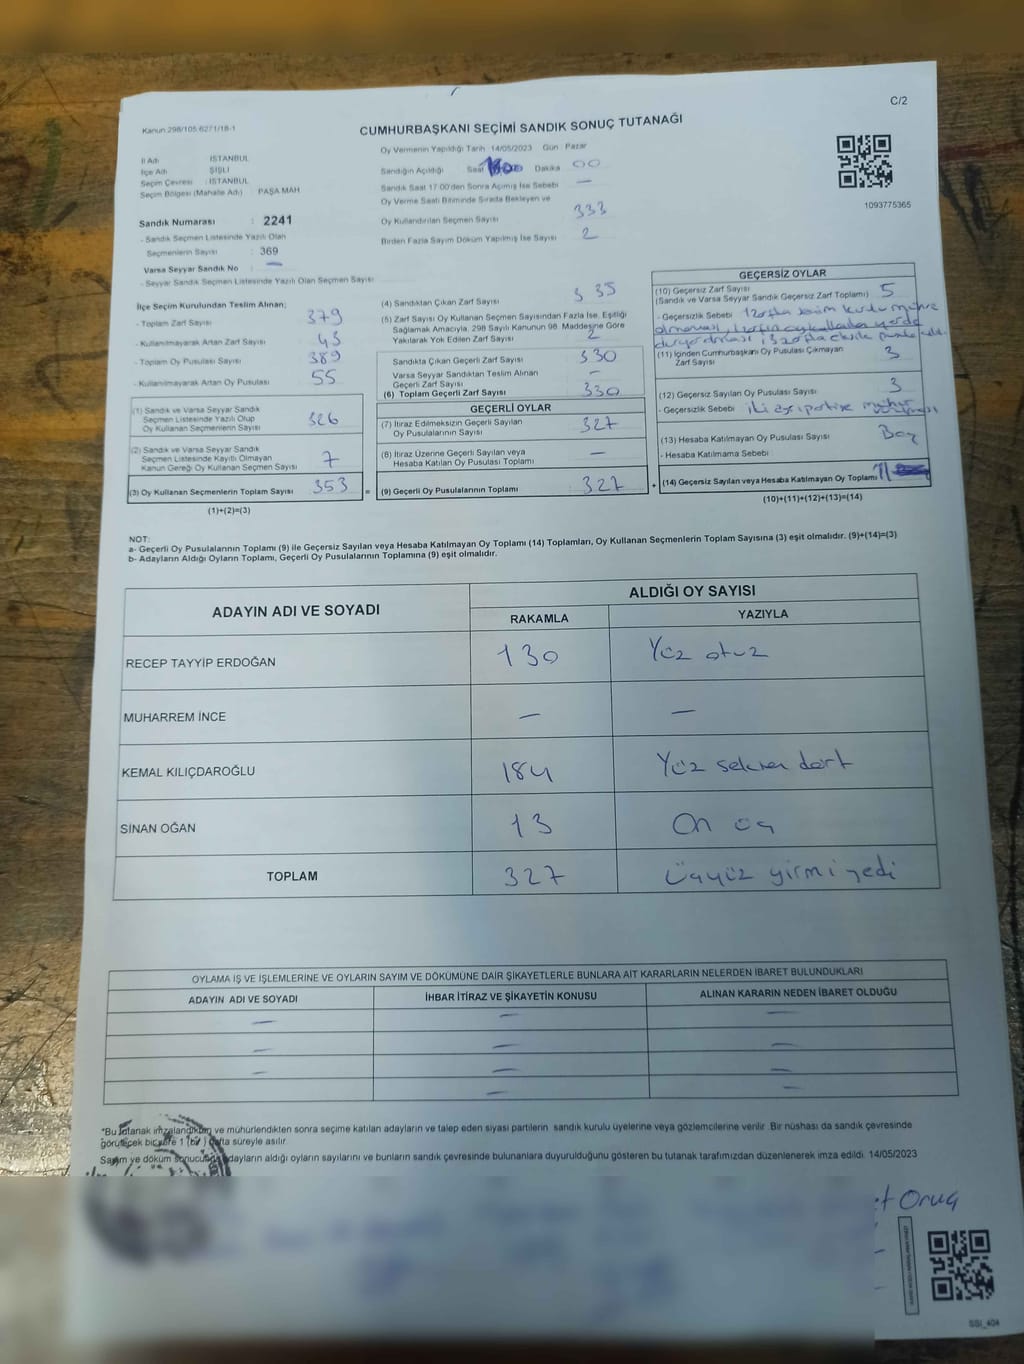 C/2
Kanun 298/105 6271/18-1
CUMHURBAŞKANI SEÇİMİ SANDIK SONUÇ TUTANAĞI
Oy Vermenin Yapıldığı Tarih 14/05/2023 Gün Pazar
İl Adı İSTANBUL
İlçe Adı ŞİŞLİ
Seçim Çevresi : İSTANBUL
Seçim Bölgesi (Mahalle Adı) PAŞA MAH
Sandığın Açıldığı Saat Dakika 00
Sandık Saat 17.00'den Sonra Açımış İse Sebebi —
Oy Verme Saati Bitiminde Sırada Bekleyen ve
Oy Kullandırılan Seçmen Sayısı 333
Birden Fazla Sayım Döküm Yapılmış İse Sayısı 2
1093775365
Sandık Numarası : 2241
- Sandık Seçmen Listesinde Yazılı Olan
Seçmenlerin Sayısı : 369
Varsa Seyyar Sandık No : —
- Seyyar Sandık Seçmen Listesinde Yazılı Olan Seçmen Sayısı
İlçe Seçim Kurulundan Teslim Alınan;
- Toplam Zarf Sayısı 379
- Kullanılmayarak Artan Zarf Sayısı 43
- Toplam Oy Pusulası Sayısı 389
- Kullanılmayarak Artan Oy Pusulası 55
(1) Sandık ve Varsa Seyyar Sandık
Seçmen Listesinde Yazılı Olup
Oy Kullanan Seçmenlerin Sayısı 326
(2) Sandık ve Varsa Seyyar Sandık
Seçmen Listesinde Kayıtlı Olmayan
Kanun Gereği Oy Kullanan Seçmen Sayısı 7
(3) Oy Kullanan Seçmenlerin Toplam Sayısı 353 =
(1)+(2)=(3)
(4) Sandıktan Çıkan Zarf Sayısı 335
(5) Zarf Sayısı Oy Kullanan Seçmen Sayısından Fazla İse, Eşitliği
Sağlamak Amacıyla, 298 Sayılı Kanunun 98. Maddesine Göre
Yakılarak Yok Edilen Zarf Sayısı 2
Sandıkta Çıkan Geçerli Zarf Sayısı 330
Varsa Seyyar Sandıktan Teslim Alınan
Geçerli Zarf Sayısı —
(6) Toplam Geçerli Zarf Sayısı 330
GEÇERLİ OYLAR
(7) İtiraz Edilmeksizin Geçerli Sayılan
Oy Pusulalarının Sayısı 327
(8) İtiraz Üzerine Geçerli Sayılan veya
Hesaba Katılan Oy Pusulası Toplamı —
(9) Geçerli Oy Pusulalarının Toplamı 327 +
GEÇERSİZ OYLAR
(10) Geçersiz Zarf Sayısı 5
(Sandık ve Varsa Seyyar Sandık Geçersiz Zarf Toplamı)
- Geçersizlik Sebebi
(11) İçinden Cumhurbaşkanı Oy Pusulası Çıkmayan
Zarf Sayısı 3
(12) Geçersiz Sayılan Oy Pusulası Sayısı 3
- Geçersizlik Sebebi iki ayrı partiye mühür
(13) Hesaba Katılmayan Oy Pusulası Sayısı
- Hesaba Katılmama Sebebi
(14) Geçersiz Sayılan veya Hesaba Katılmayan Oy Toplamı
(10)+(11)+(12)+(13)=(14)
NOT:
a- Geçerli Oy Pusulalarının Toplamı (9) ile Geçersiz Sayılan veya Hesaba Katılmayan Oy Toplamı (14) Toplamları, Oy Kullanan Seçmenlerin Toplam Sayısına (3) eşit olmalıdır. (9)+(14)=(3)
b- Adayların Aldığı Oyların Toplamı, Geçerli Oy Pusulalarının Toplamına (9) eşit olmalıdır.
ADAYIN ADI VE SOYADI
ALDIĞI OY SAYISI
RAKAMLA YAZIYLA
RECEP TAYYİP ERDOĞAN 130 Yüz otuz
MUHARREM İNCE — —
KEMAL KILIÇDAROĞLU 184 Yüz seksen dört
SİNAN OĞAN 13 On üç
TOPLAM 327 Üçyüz yirmi yedi
OYLAMA İŞ VE İŞLEMLERİNE VE OYLARIN SAYIM VE DÖKÜMÜNE DAİR ŞİKAYETLERLE BUNLARA AİT KARARLARIN NELERDEN İBARET BULUNDUKLARI
ADAYIN ADI VE SOYADI İHBAR İTİRAZ VE ŞİKAYETİN KONUSU ALINAN KARARIN NEDEN İBARET OLDUĞU
— — —
— — —
— — —
— —
*Bu tutanak imzalandıktan ve mühürlendikten sonra seçime katılan adayların ve talep eden siyasi partilerin sandık kurulu üyelerine veya gözlemcilerine verilir. Bir nüshası da sandık çevresinde
görülecek bir yere 1 (bir) hafta süreyle asılır.
Sayım ve döküm sonucunda adayların aldığı oyların sayılarını ve bunların sandık çevresinde bulunanlara duyurulduğunu gösteren bu tutanak tarafımızdan düzenlenerek imza edildi. 14/05/2023
Oruç
SSI_404